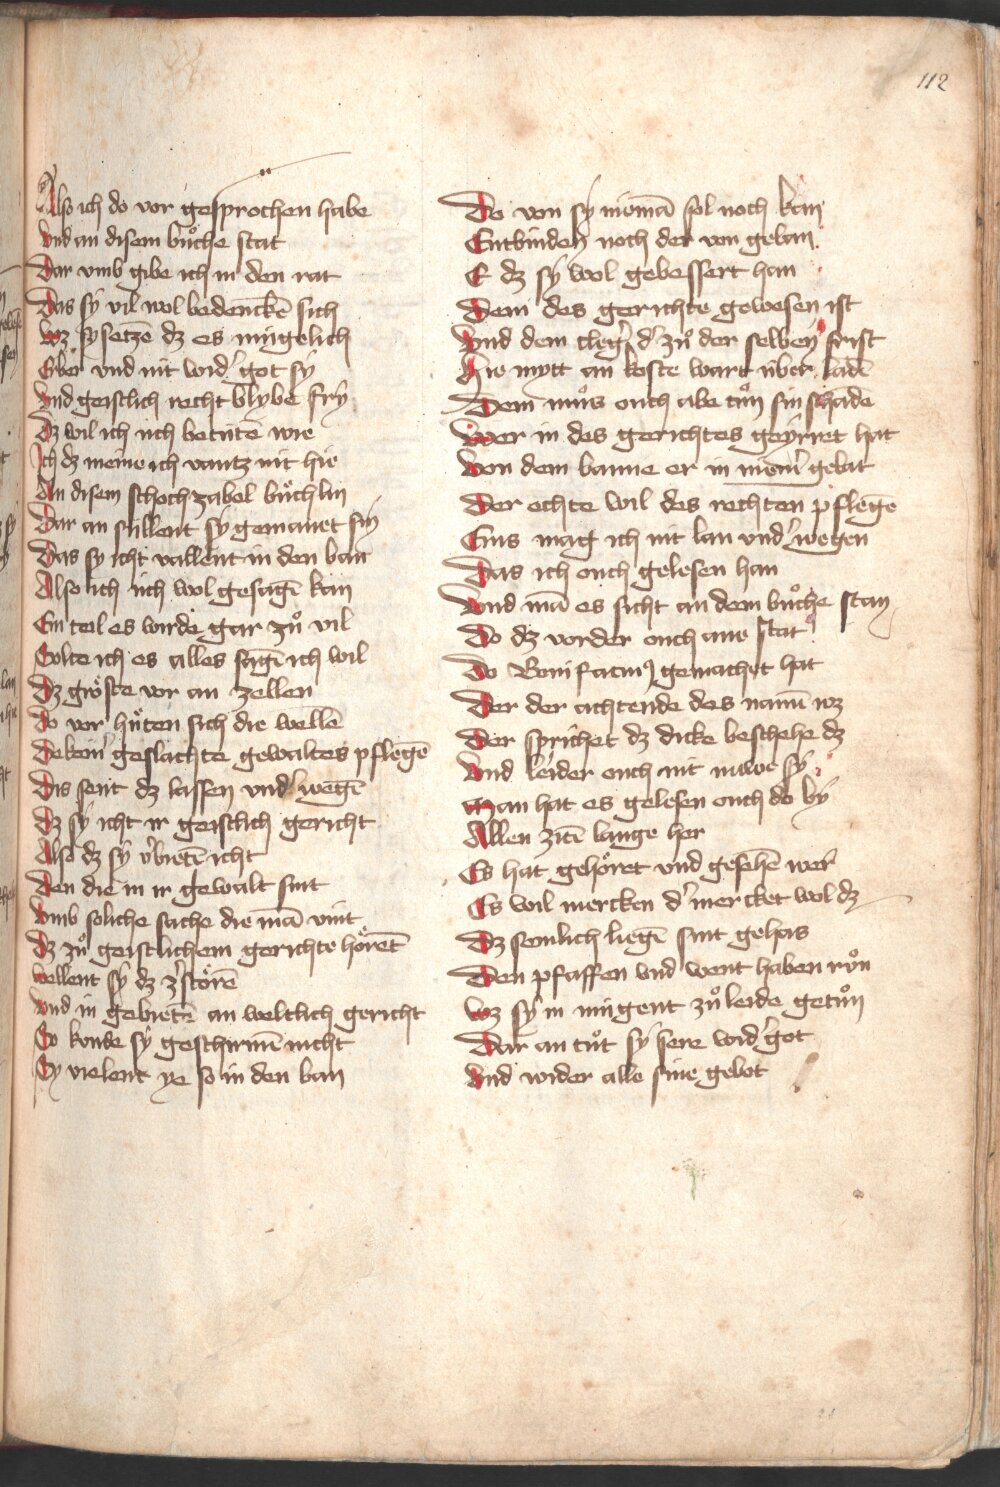 112
Also ich do vor gesprochen habe
Vnd an disem bůche stat
Dar vmb gibe ich in den rat
Das sÿ vil wol bedenckē sich
Wz sÿ setzē dz es mügelich
Eber vnd nit wid' got sÿ
Vnd geistlich recht blybe frÿ
Dz wil ich üch betütē wie
Ich dz meine ich vantz nit hie
An disem schochzabel bůchlin
Dar an süllent sÿ gemanet sin
Das sy icht vallent in den ban
Also ich üch wol gesagē kan
Ein teil es wirde gar zů vil
Solte ich es alles sagē ich wil
Dz gröste vor an zellen
Do vor hůten sich die wellē
Dekein' geslachte gewaltes pflegē
Dis seit dz lassen vnd' wegē
Dz sÿ icht ir geistlich gericht
Also dz sÿ v'bietē icht
Den die in ir gewalt sint
Vmb soliche sache die mā vint
Dz zů geistlichem gerichte hörēt
Wellent sÿ dz z'störē
Vnd in gebietē an weltlich gericht
So konde sÿ geschirmē nicht
Sy vielent ye so in den ban
Do von sÿ niemā sol noch kan
Entbinden noch der von gelan
E dz sÿ wol gebessert han
Dem des gerichte gewesen ist
Vnd dem cleg' d' zů der selben frist
Hie mytt an koste wart über ladē
Dem můs ouch abe tůn sin schadē
Wer in des gerichtes geyrret hat
Von dem banne er in niem' gelat
Der echte wil des rechten pflegē
Eins mag ich nit lan vnd' wegen
Das ich ouch gelesen han
Vnd mā es sicht an dem bůche stan
Do dz vorder ouch ane stat
Do Bonifaciu9 gemachet hat
Der der achtende des namē wz
Der sprichet dz dicke beschehe dz
Vnd leider ouch nit nüwe sÿ
Man hat es gelesen ouch do bÿ
Allen zitē lange her
Es hat gehöret vnd gesehē wer
Es wil mercken d' mercket wol dz
Dz semlich liegē sint gehas
Den pfaffen vnd went haben růn
Wz sÿ in mügent zů leide getůn
Dar an tůt sÿ sere wid' got
Vnd wider alle sine gebot